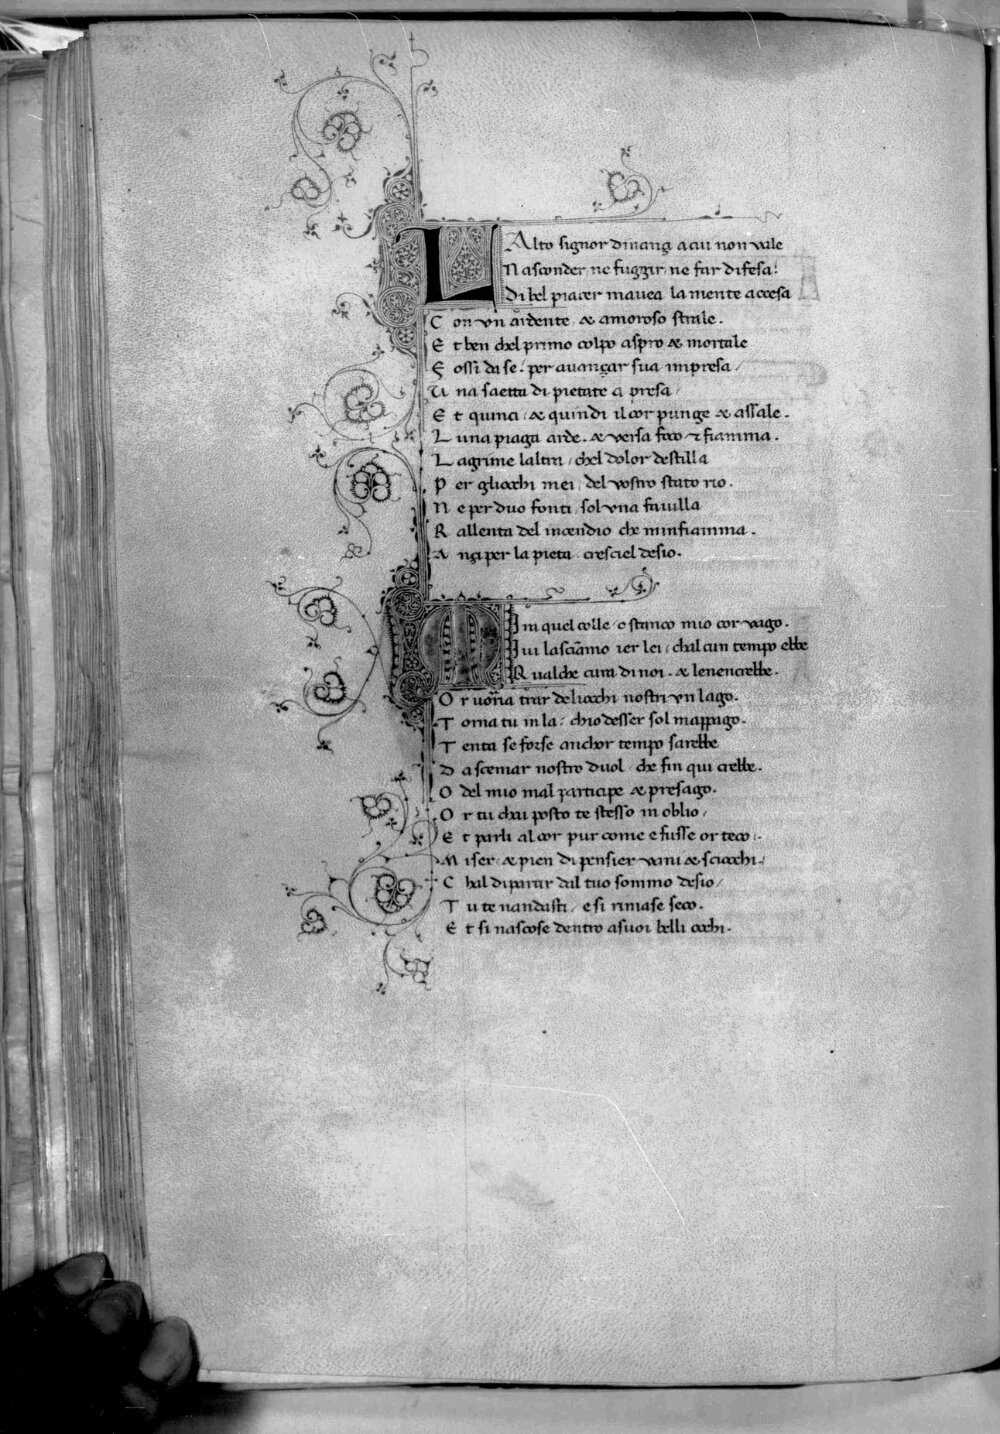 L Alto signor dinanç a cui non vale
Nasconder, ne fuggir, ne far difesa:
Di bel piacer mavea la mente accesa
C on vn ardente & amoroso strale.
E t ben chel primo colpo aspro & mortale
F ossi da se: per auançar sua impresa /
U na saetta di pietate a presa /
E t quinci / & quindi il cor punge & assale.
L una piaga arde. & versa foco & fiamma.
L agrime laltra / chel dolor destilla
P er gliocchi mei / del vostro stato rio.
N e per duo fonti / sol vna fauilla
R allenta del incendio che minfiamma.
A nçi per la pieta cresciel desio.
M Ira quel colle / o stanco mio cor vago.
Iui lasciamo ier lei / chalcun tempo ebbe
Qualche cura di noi. & lenencrebbe.
O r uoria trar deliocchi nostri vn lago.
T orna tu in la / chio desser sol mappago.
T enta se forse anchor tempo sarebbe
D a scemar nostro duol / che fin qui crebbe.
O del mio mal participe & presago.
O r tu chai posto te stesso in oblio /
E t parli al cor pur come e fusse or teco.
M iser / & pien di pensier vani & sciocchi /
C hal dipartir dal tuo sommo desio /
T u te nandasti / e si rimase seco.
E t si nascose dentro a suoi belli occhi.